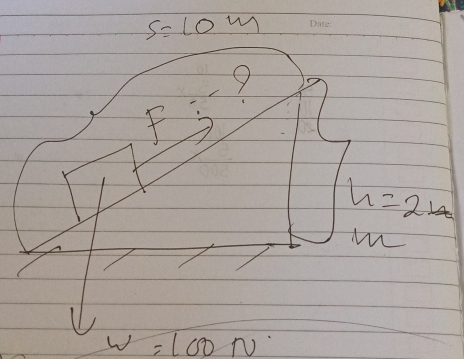 Date
s=10 m
F = ?
h=2
m
w =100 N.